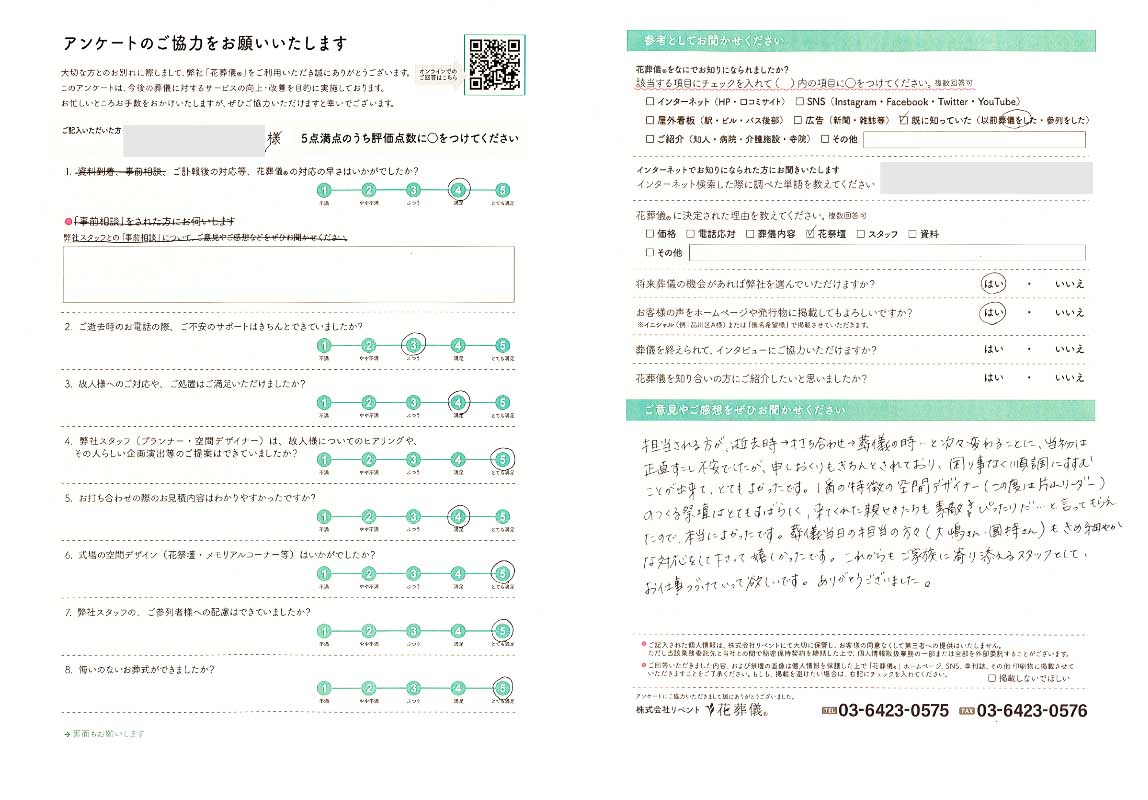 アンケートのご協力をお願いいたします
大切な方とのお別れに際しまして、弊社「花葬儀®」をご利用いただき誠にありがとうございます。
このアンケートは、今後の葬儀に対するサービスの向上・改善を目的に実施しております。
お忙しいところお手数をおかけいたしますが、ぜひご協力いただけますと幸いでございます。
オンラインでの
ご回答はこちら
ご記入いただいた方
様
5点満点のうち評価点数に○をつけてください
1. 資料到着、事前相談、ご訃報後の対応等、花葬儀®の対応の早さはいかがでしたか?
1 2 3 4 5
不満 やや不満 ふつう 満足 とても満足
「事前相談」をされた方にお伺いします
弊社スタッフとの「事前相談」について、ご意見やご感想などをぜひお聞かせください。
2. ご逝去時のお電話の際、ご不安のサポートはきちんとできていましたか?
1 2 3 4 5
不満 やや不満 ふつう 満足 とても満足
3. 故人様へのご対応や、ご処置はご満足いただけましたか?
1 2 3 4 5
不満 やや不満 ふつう 満足 とても満足
4. 弊社スタッフ(プランナー・空間デザイナー)は、故人様についてのヒアリングや、
その人らしい企画演出等のご提案はできていましたか?
1 2 3 4 5
不満 やや不満 ふつう 満足 とても満足
5. お打ち合わせの際のお見積内容はわかりやすかったですか?
1 2 3 4 5
不満 やや不満 ふつう 満足 とても満足
6. 式場の空間デザイン(花祭壇・メモリアルコーナー等)はいかがでしたか?
1 2 3 4 5
不満 やや不満 ふつう 満足 とても満足
7. 弊社スタッフの、ご参列者様への配慮はできていましたか?
1 2 3 4 5
不満 やや不満 ふつう 満足 とても満足
8. 悔いのないお葬式ができましたか?
1 2 3 4 5
不満 やや不満 ふつう 満足 とても満足
→裏面もお願いします
参考としてお聞かせください
花葬儀®をなにでお知りになられましたか?
該当する項目にチェックを入れて( )内の項目に○をつけてください。複数回答可
□ インターネット(HP・口コミサイト) □ SNS(Instagram・Facebook・Twitter・YouTube)
□ 屋外看板(駅・ビル・バス後部) □ 広告(新聞・雑誌等) ☑ 既に知っていた(以前葬儀をした・参列をした)
□ ご紹介(知人・病院・介護施設・寺院) □ その他
インターネットでお知りになられた方にお聞きいたします
インターネット検索した際に調べた単語を教えてください
花葬儀®に決定された理由を教えてください。複数回答可
□ 価格 □ 電話応対 □ 葬儀内容 ☑ 花祭壇 □ スタッフ □ 資料
□ その他
将来葬儀の機会があれば弊社を選んでいただけますか? はい ・ いいえ
お客様の声をホームページや発行物に掲載してもよろしいですか? はい ・ いいえ
※イニシャル(例:品川区A様)または「匿名希望様」で掲載させていただきます。
葬儀を終えられて、インタビューにご協力いただけますか? はい ・ いいえ
花葬儀を知り合いの方にご紹介したいと思いましたか? はい ・ いいえ
ご意見やご感想をぜひお聞かせください
担当される方が、逝去時→打ち合わせ→葬儀の時…と次々変わることに、当初は
正直すこし不安でしたが、申しおくりもきちんとされており、困り事なく順調にすすむ
ことが出来て、とてもよかったです。1番の特徴の空間デザイナー(この度は片山リーダー)
のつくる祭壇はとてもすばらしく、来てくれた親せきたちも素敵!ぴったりだ…と言ってもらえ
たので、本当によかったです。葬儀当日の担当の方々(大嶋さん・圓持さん)もきめ細やか
な対応をして下さって嬉しかったです。これからもご家族に寄り添えるスタッフとして、
お仕事つづけていって欲しいです。ありがとうございました。
ご記入された個人情報は、株式会社リベントにて大切に保管し、お客様の同意なくして第三者への提供はいたしません。
ただし当該業務委託先と当社との間で秘密保持契約を締結した上で、個人情報取扱業務の一部または全部を外部委託することがございます。
ご回答いただきました内容、および祭壇の画像は個人情報を保護した上で「花葬儀®」ホームページ、SNS、季刊誌、その他印刷物に掲載させて
いただきますことをご了承ください。もしも、掲載を避けたい場合は、右記にチェックを入れてください。 □ 掲載しないでほしい
アンケートにご協力いただきまして誠にありがとうございました。
株式会社リベント 花葬儀® TEL 03-6423-0575 FAX 03-6423-0576